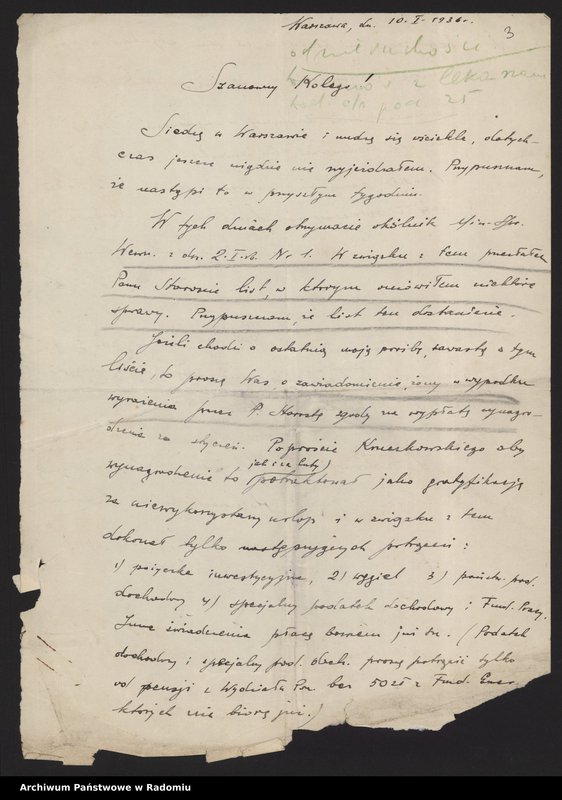 Warszawa, dn. 10.I-1936 r.
3
Szanowny Kolego!
Siedzę w Warszawie i nudzę się wściekle, dotych-
czas jeszcze nigdzie nie wyjeżdżałem. Przypuszczam,
że nastąpi to w przyszłym tygodniu.
W tych dniach otrzymacie okólnik Min. Spr.
Wewn. z dn. 2.I. rb. Nr 1. W związku z tem przesłałem
Panu Staroście list, w którym omówiłem niektóre
sprawy. Przypuszczam, że list ten dostaniecie.
Jeżeli chodzi o ostatnią moją prośbę, zawartą w tym
liście, to proszę Was o zawiadomienie, w wypadku
wyrażenia przez P. Starostę zgody na wypłatę wynagro-
dzenia za styczeń. Poproście Kruczkowskiego aby
jak i za luty)
wynagrodzenie to potraktował jako gratyfikację
za niewykorzystany urlop i w związku z tem
dokonał tylko następujących potrąceń:
1) pożyczka inwestycyjna, 2) węgiel 3) państw. pod.
dochodowy 4) specjalny podatek dochodowy i Fund. Pracy.
Inne świadczenia płacę bowiem już tu. (Podatek
dochodowy i specjalny pod. doch. proszę potrącić tylko
od pensji z Wydziału Pow. bez 50 zł z Fund.
których nie biorę już.)
Archiwum Państwowe w Radomiu